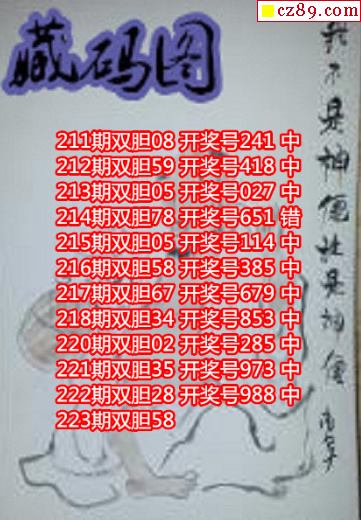 cz89.com
藏码图
我不是神僊谁是神僊
211期双胆08 开奖号241 中
212期双胆59 开奖号418 中
213期双胆05 开奖号027 中
214期双胆78 开奖号651 错
215期双胆05 开奖号114 中
216期双胆58 开奖号385 中
217期双胆67 开奖号679 中
218期双胆34 开奖号853 中
220期双胆02 开奖号285 中
221期双胆35 开奖号973 中
222期双胆28 开奖号988 中
223期双胆58